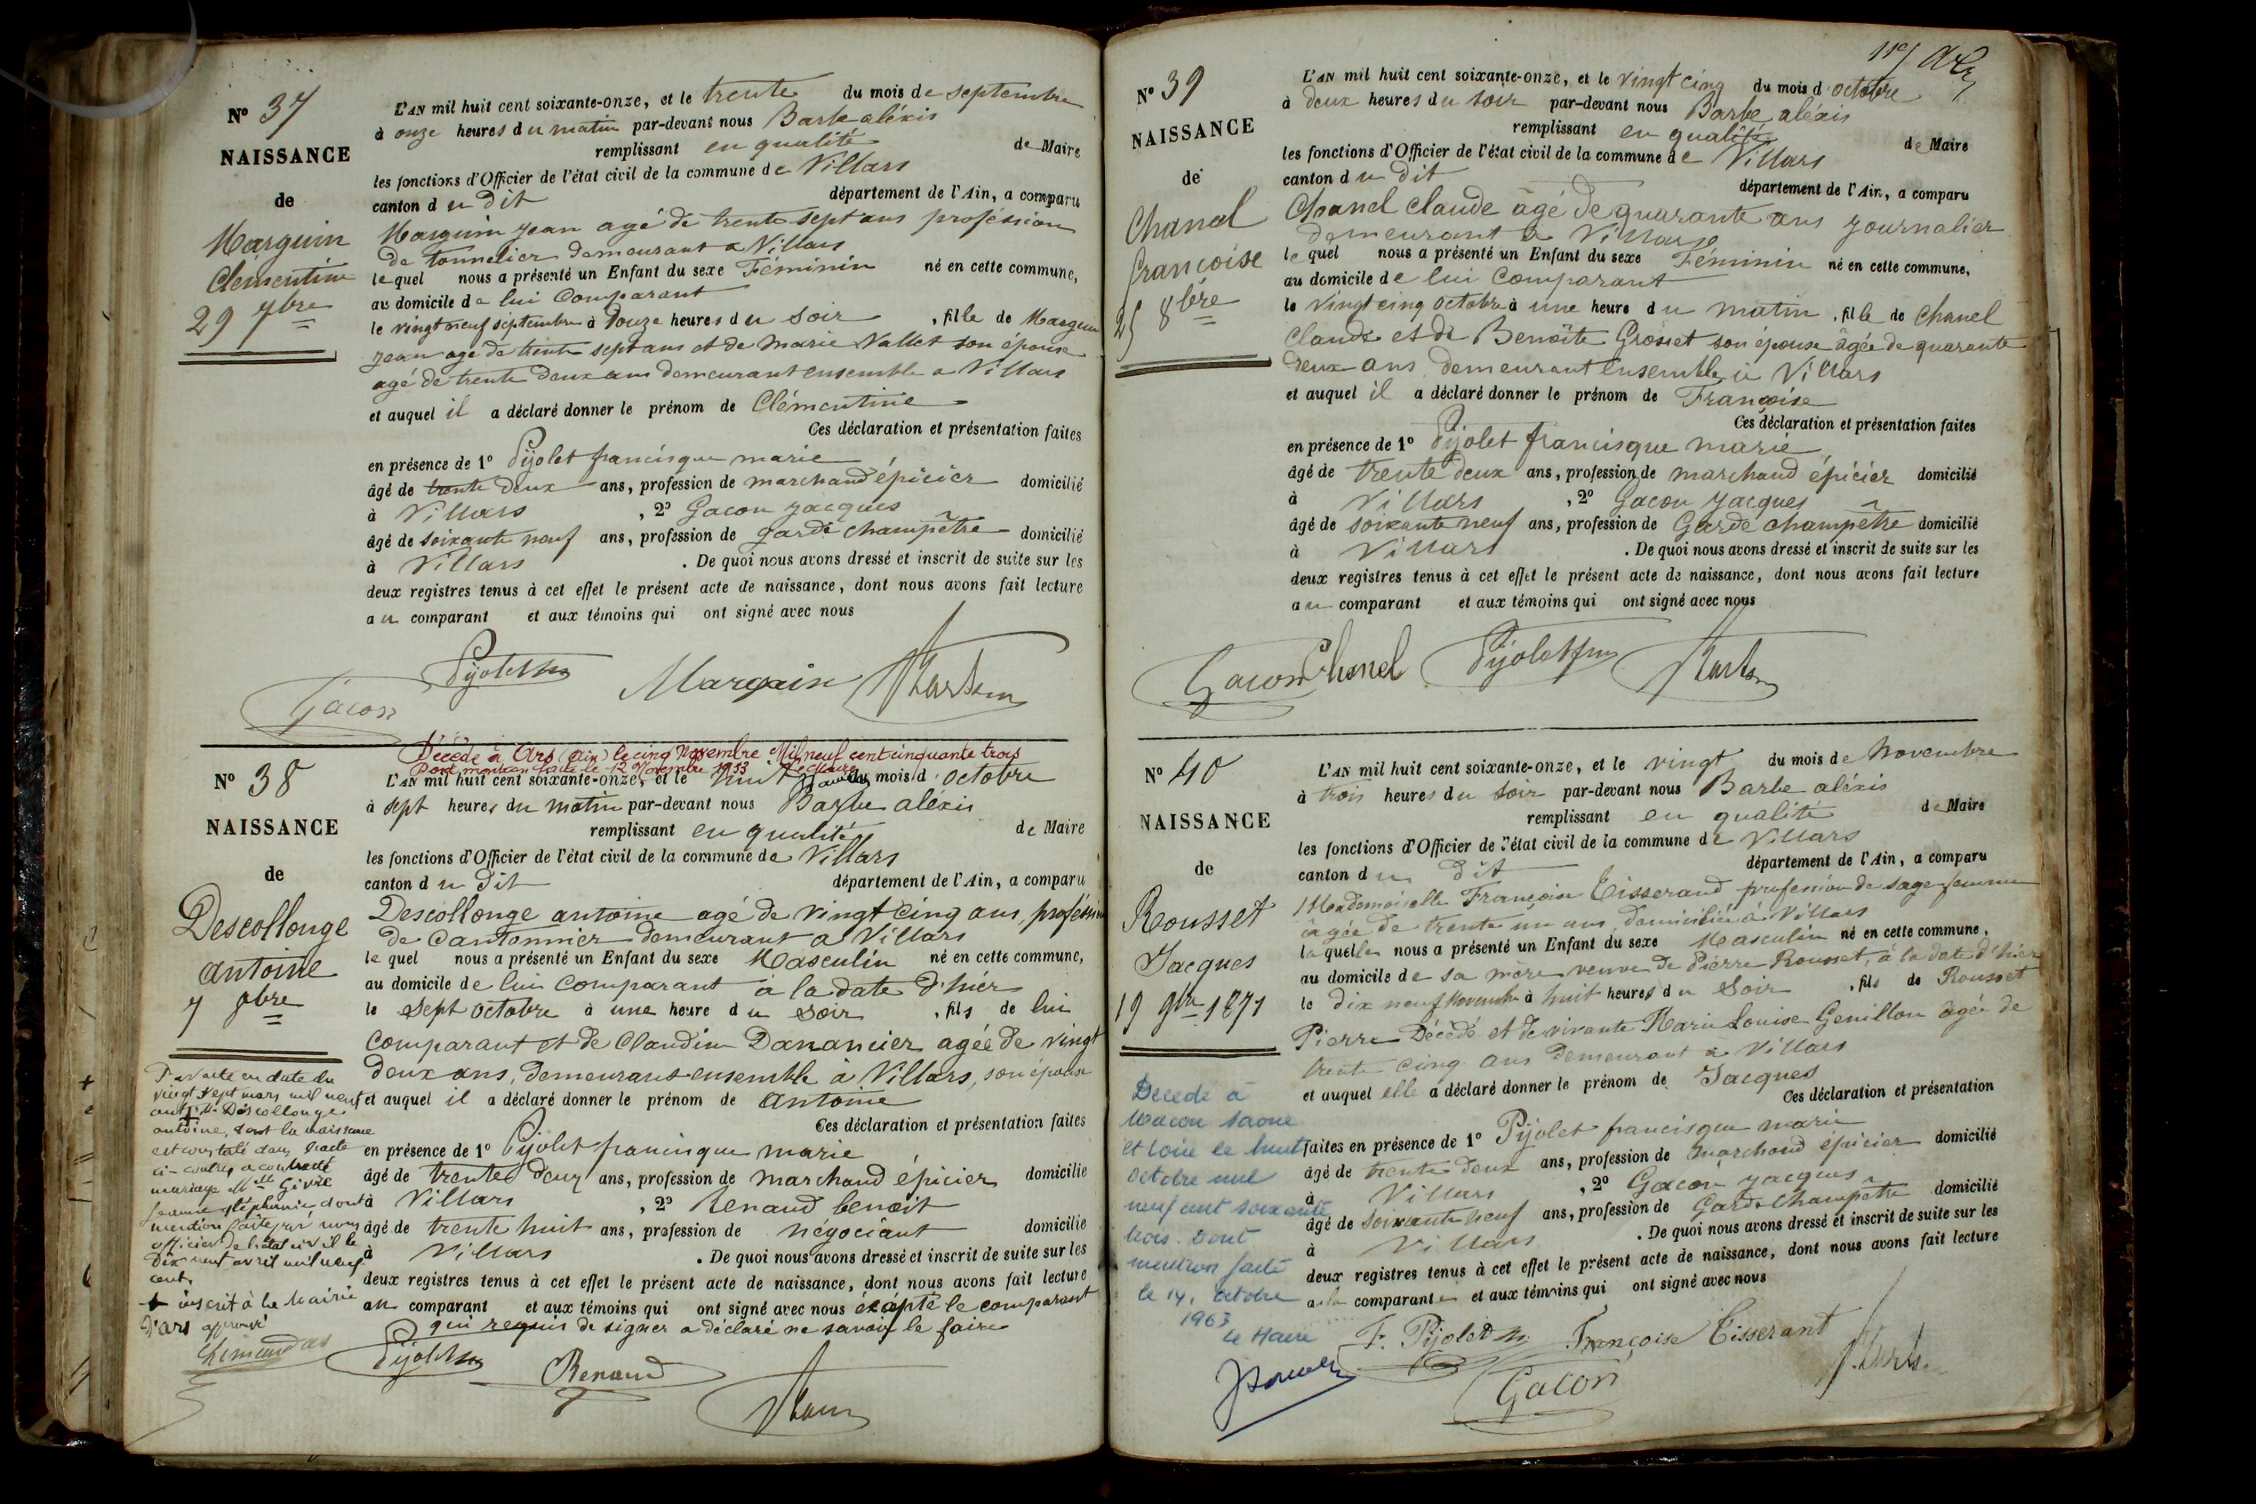 N° 37
NAISSANCE
de
Marguin
Clémentine
29 7bre
L'AN mil huit cent soixante-onze, et le trente du mois de septembre
à onze heures du matin par-devant nous Barbe aléxis
remplissant en qualité de Maire
les fonctions d'Officier de l'état civil de la commune de Villars
canton du dit département de l'Ain, a comparu
Marguin jean agé de trente sept ans proféssion
de tonnelier demeurant a Villars
lequel nous a présenté un Enfant du sexe Féminin né en cette commune,
au domicile de lui Comparant
le vingt neuf septembre à douze heures du soir, fille de Marguin
jean agé de trente sept ans et de Marie Vallet son épouse
agé de trente deux ans demeurant ensemble a Villars
et auquel il a déclaré donner le prénom de Clémentine
Ces déclaration et présentation faites
en présence de 1° Pijolet francisque marie
âgé de trente deux ans, profession de marchand épicier domicilié
à Villars, 2° Gacon jacques
âgé de soixante neuf ans, profession de garde champêtre domicilié
à Villars. De quoi nous avons dressé et inscrit de suite sur les
deux registres tenus à cet effet le présent acte de naissance, dont nous avons fait lecture
au comparant et aux témoins qui ont signé avec nous
Pijolet Marguin
Gacon
Décédé à Ars (Ain) le cinq Novembre Mil neuf cent cinquante trois
Dont mention faite le 12 Novembre 1953
N° 38
NAISSANCE
de
Descollonge
antoine
7 8bre
L'AN mil huit cent soixante-onze, et le huit du mois d'octobre
à sept heures du matin par-devant nous Barbe aléxis
remplissant en qualité de Maire
les fonctions d'Officier de l'état civil de la commune de Villars
canton du dit département de l'Ain, a comparu
Descollonge antoine agé de vingt cinq ans, proféssion
de Cantonnier demeurant a Villars
lequel nous a présenté un Enfant du sexe Masculin né en cette commune,
au domicile de lui Comparant à la date d'hier
le sept octobre à une heure du soir, fils de lui
comparant et de Claudine Danancier agée de vingt
deux ans, demeurant ensemble à Villars, son épouse
et auquel il a déclaré donner le prénom de antoine
Ces déclaration et présentation faites
en présence de 1° Pijolet francisque marie
âgé de trente deux ans, profession de marchand épicier domicilié
à Villars, 2° Renaud benoit
âgé de trente huit ans, profession de négociant domicilié
à Villars. De quoi nous avons dressé et inscrit de suite sur les
deux registres tenus à cet effet le présent acte de naissance, dont nous avons fait lecture
au comparant et aux témoins qui ont signé avec nous éxépté le comparant
qui requis de signer a déclaré ne savoir le faire
Pijolet Renaud
Par acte en date du
vingt sept mars mil neuf
cent + Mr Descollonge
antoine, dont la naissance
est constatée dans l'acte
ci-contre a contracté
mariage Mlle Givre
jeanne stéphanie dont
mention faite par nous
officier de l'état civil le
Dix neuf avril mil neuf
cent.
+ inscrit à la Mairie
d'Ars approuvé
119
N° 39
NAISSANCE
de
Chanel
françoise
25 8bre
L'AN mil huit cent soixante-onze, et le vingt cinq du mois d'octobre
à deux heures du soir par-devant nous Barbe aléxis
remplissant en qualité de Maire
les fonctions d'Officier de l'état civil de la commune de Villars
canton du dit département de l'Ain, a comparu
Chanel claude âgé de quarante ans journalier
demeurant à Villars
lequel nous a présenté un Enfant du sexe Féminin né en cette commune,
au domicile de lui Comparant
le vingt cinq octobre à une heure du matin, fille de Chanel
Claude et de Benoîte Grosset son épouse âgée de quarante
deux ans demeurant ensemble à Villars
et auquel il a déclaré donner le prénom de Françoise
Ces déclaration et présentation faites
en présence de 1° Pijolet francisque marie
âgé de trente deux ans, profession de marchand épicier domicilié
à Villars, 2° Gacon jacques
âgé de soixante neuf ans, profession de Garde champêtre domicilié
à Villars. De quoi nous avons dressé et inscrit de suite sur les
deux registres tenus à cet effet le présent acte de naissance, dont nous avons fait lecture
au comparant et aux témoins qui ont signé avec nous
Gacon Chanel Pijolet
N° 40
NAISSANCE
de
Rousset
Jacques
19 9bre 1871
L'AN mil huit cent soixante-onze, et le vingt du mois de Novembre
à trois heures du soir par-devant nous Barbe aléxis
remplissant en qualité de Maire
les fonctions d'Officier de l'état civil de la commune de Villars
canton du dit département de l'Ain, a comparu
Mademoiselle Françoise Tisserand profession de sage femme
agée de trente un ans, domiciliée à Villars
laquelle nous a présenté un Enfant du sexe Masculin né en cette commune,
au domicile de sa mère veuve de Pierre Rousset, à la date d'hier
le dix neuf Novembre à huit heures du soir, fils de Rousset
Pierre Décédé et de vivante Marie Louise Genillon agée de
trente cinq ans demeurant à Villars
et auquel elle a déclaré donner le prénom de Jacques
Ces déclaration et présentation
faites en présence de 1° Pijolet francisque marie
âgé de trente deux ans, profession de marchand épicier domicilié
à Villars, 2° Gacon jacques
âgé de soixante neuf ans, profession de Garde champêtre domicilié
à Villars. De quoi nous avons dressé et inscrit de suite sur les
deux registres tenus à cet effet le présent acte de naissance, dont nous avons fait lecture
a la comparante et aux témoins qui ont signé avec nous
F. Pijolet Françoise Tisserant
Gacon
Décédé à
Macon Saone
et Loire le huit
octobre mil
neuf cent soixante
trois. Dont
mention faite
le 14 octobre
1963
Le Maire